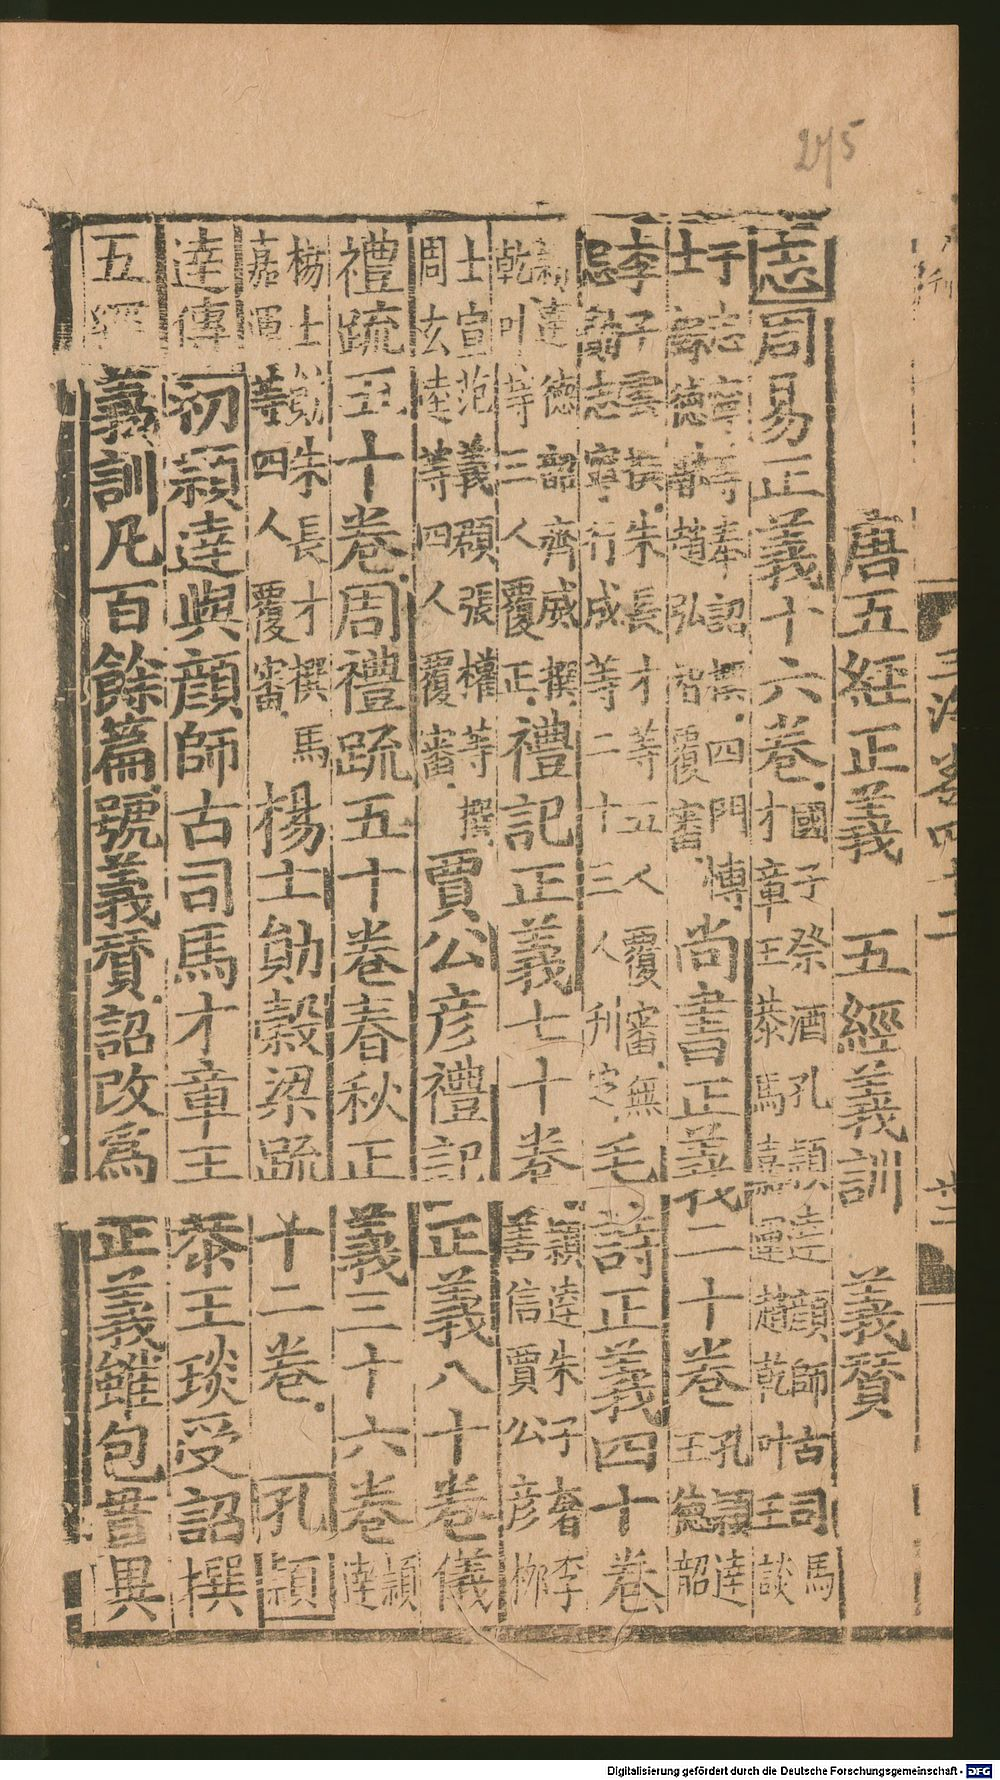 唐五經正義 五經義訓 義贊
志周易正義十六卷國子祭酒孔穎達顔師古司馬才章王恭馬嘉運趙乾叶王談
于志寧等奉詔撰四門博士蘇德融趙弘智覆審尚書正義二十卷孔穎達王德韶
李子雲等撰朱長才等五人覆審無忌勣志寧行成等二十三人刋定毛詩正義四十卷
穎達德韶齊威撰乾叶等三人覆正禮記正義七十卷穎達朱子奢李善信賈公彦柳
士宣范義頵張權等撰周玄達等四人覆審賈公彦禮記正義八十卷儀
禮䟽五十卷周禮䟽五十卷春秋正義三十六卷穎達
楊士勛朱長才撰馬嘉運等四人覆審楊士勛穀梁䟽十二卷孔穎
達傳初穎達與顔師古司馬才章王恭王琰受詔撰
五經義訓凡百餘篇號義贊詔改爲正義雖包貫異
275
Digitalisierung gefördert durch die Deutsche Forschungsgemeinschaft - DFG